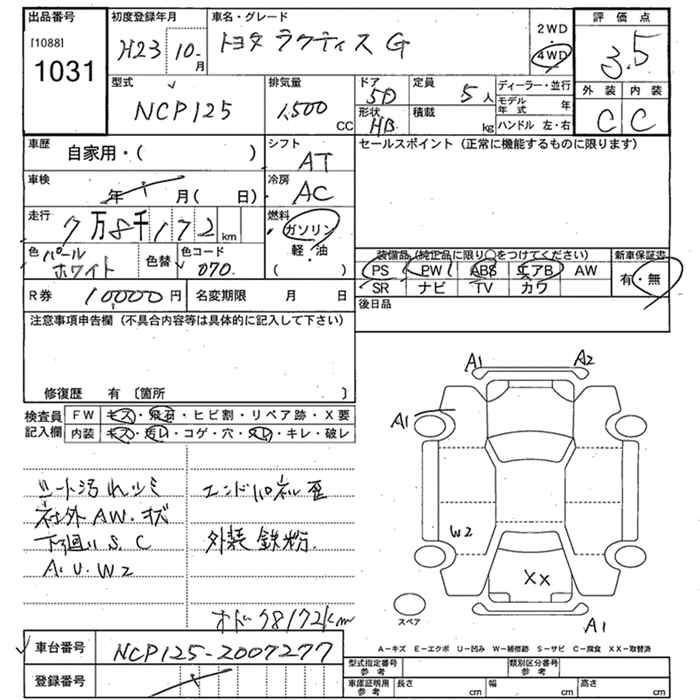 出品番号
[1088]
1031
初度登録年月
H23 10 月
車名・グレード
トヨタ ラクティス G
2WD
4WD
評価点
3.5
型式
NCP125
排気量
1,500 CC
ドア 5D
形状 HB
定員 5 人
積載 kg
ディーラー・並行
モデル年式 年
ハンドル 左・右
外装 内装
C C
車歴
自家用・( )
シフト
AT
セールスポイント (正常に機能するものに限ります)
車検
年 月( 日)
冷房
AC
走行
7万8千172 km
燃料
ガソリン
軽・油
( )
色 パールホワイト
色替
色コード
070
装備品 (純正品に限り○をつけてください)
新車保証書
PS PW ABS エアB AW
有・無
SR ナビ TV カワ
R券 10000 円
名変期限 月 日
後日品
注意事項申告欄 (不具合内容等は具体的に記入して下さい)
修復歴 有 〔箇所 〕
検査員記入欄
FW キズ・飛石・ヒビ割・リペア跡・X要
内装 キズ・汚れ・コゲ・穴・スレ・キレ・破レ
シート汚れ,シミ
社外AW.キズ
下廻りS.C
A.U.W2
エンドパネル歪
外装鉄粉.
オドク8172km
A1 A2
A1
W2
XX
スペア
A1
A-キズ E-エクボ U-凹み W-補修跡 S-サビ C-腐食 XX-交換済
車台番号
NCP125-2007277
登録番号
型式指定番号 参考
類別区分番号 参考
車庫証明用 参考
長さ cm
幅 cm
高さ cm